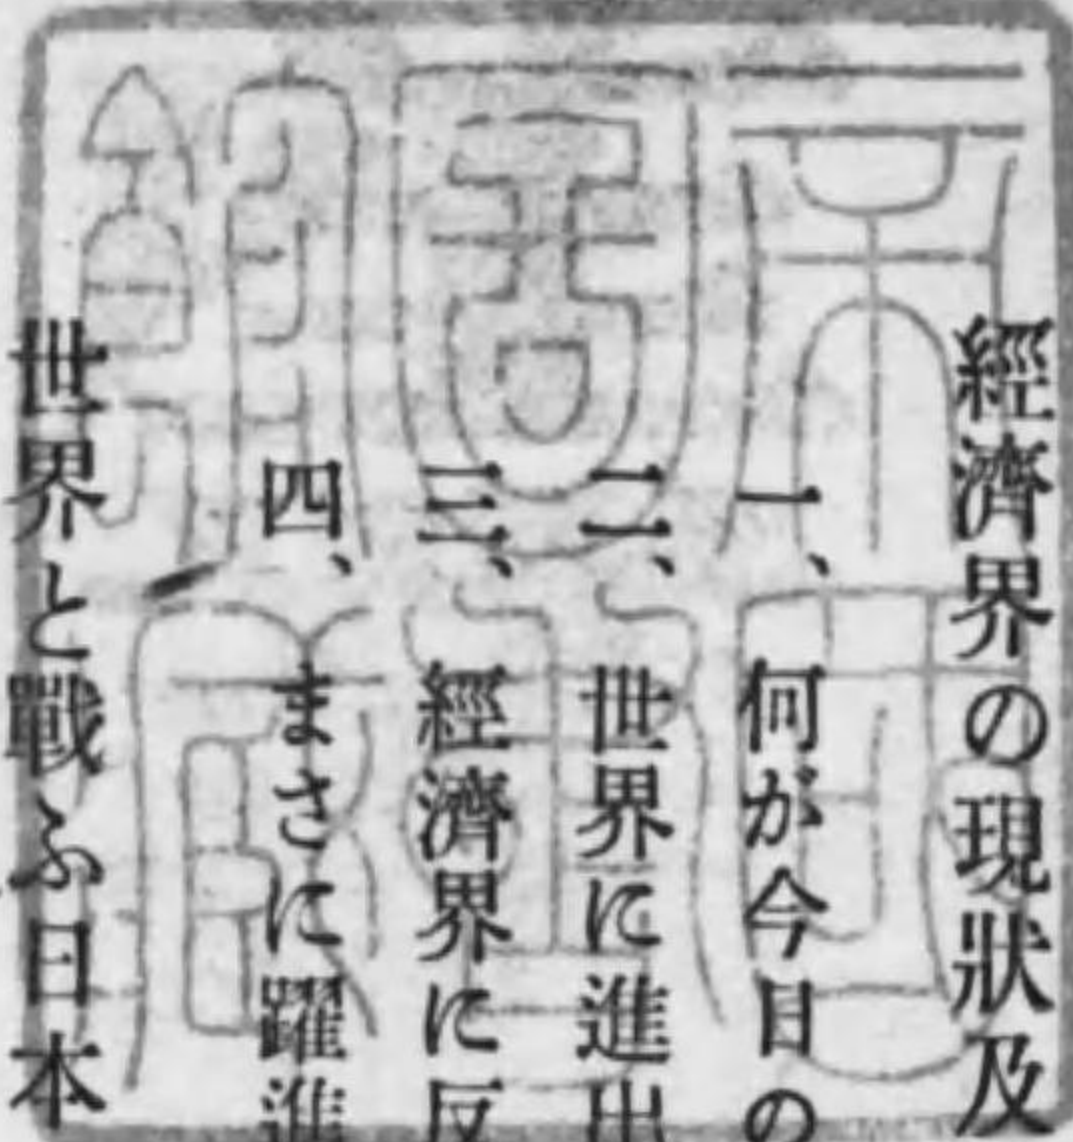 經濟界の現狀及
一、何が今日の
二、世界に進出
三、經濟界に反
四、まさに躍進
世界と戰ふ日本
帝國圖書館藏